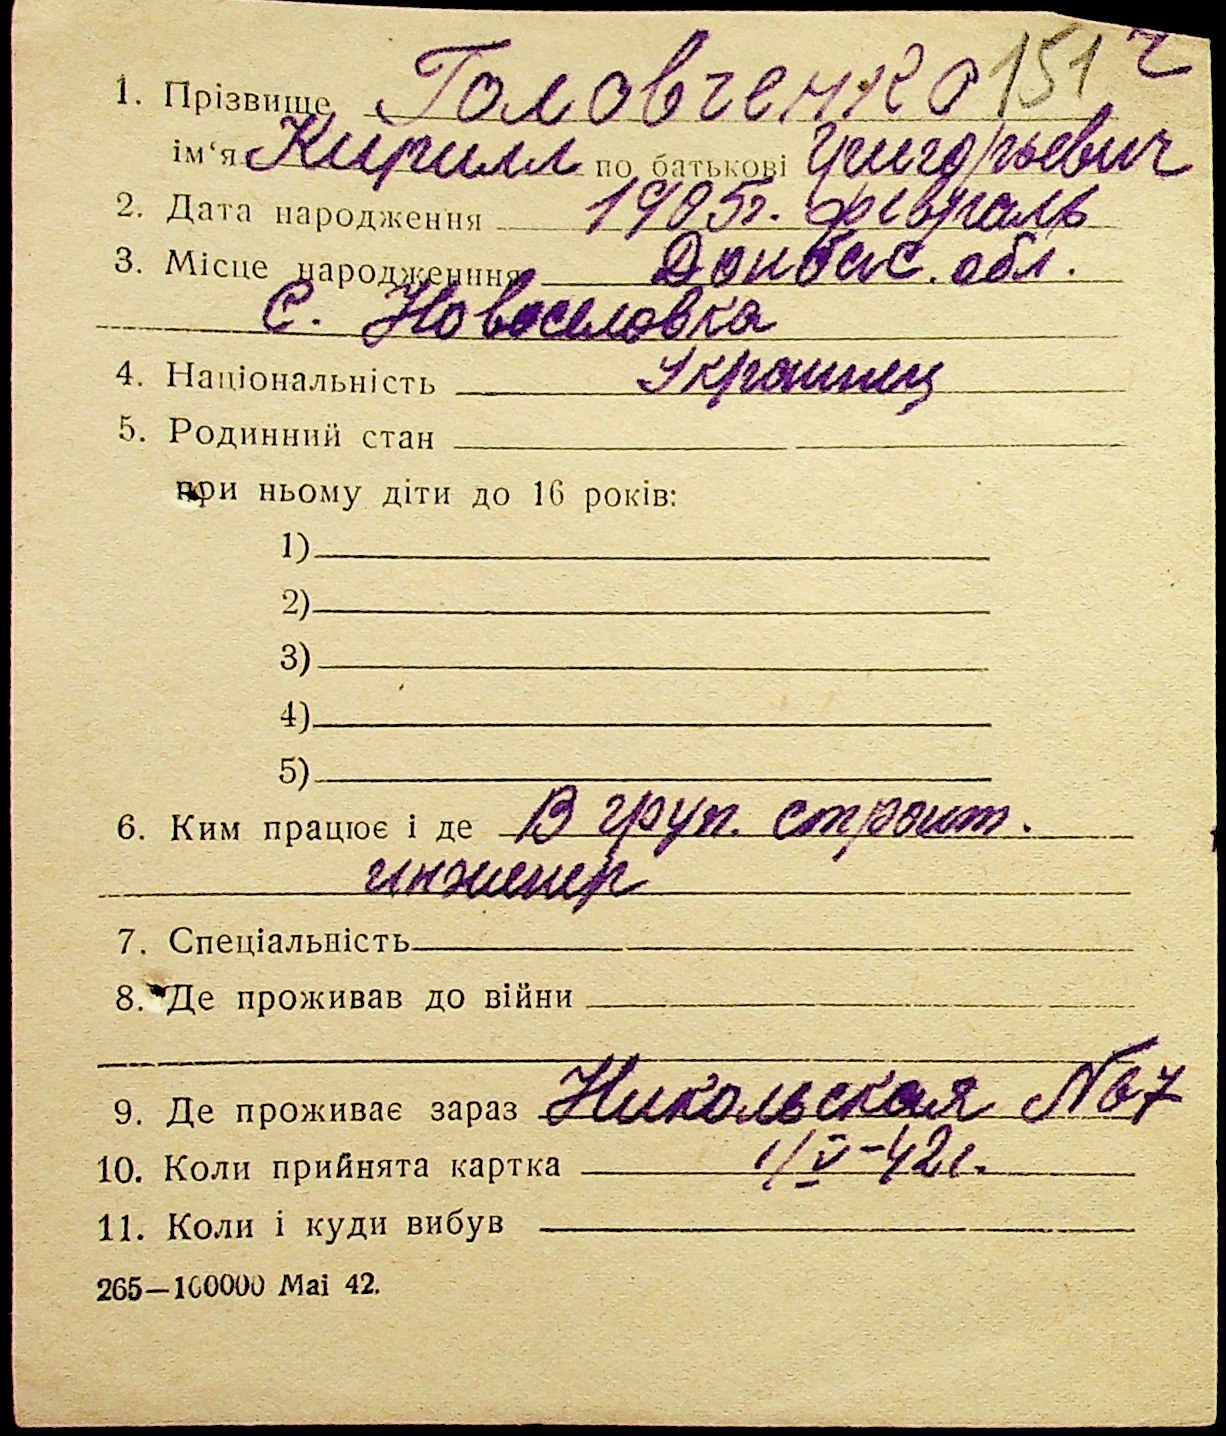 1. Прізвище Головченко 151 г
ім‘я Кирилл по батькові Григорьевич
2. Дата народження 1905г. февраль
3. Місце народженння Донбас. обл.
С. Новоселовка
4. Національність Украинец
5. Родинний стан
при ньому діти до 16 років:
1)
2)
3)
4)
5)
6. Ким працює і де В груп. строит.
инженер
7. Спеціальність
8. Де проживав до війни
9. Де проживає зараз Никольская № 7
10. Коли прийнята картка 1/V-42г.
11. Коли і куди вибув
265—100000 Маі 42.